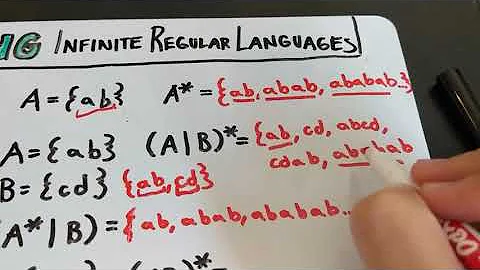 MG INFINITE REGULAR LANGUAGES
A={ab} A*={ab, abab, ababab..}
A={ab} (A|B)*={ab, cd, abcd,
cdab,
B={cd} {ab, cd}
(A*|B)={ab, abab, ababab...